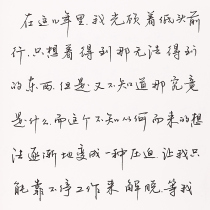 在这几年里，我光顾着低头前
行，只想着得到那无法得到
的东西，但是，又不知道那究竟
是什么，而这个不知从何而来的想
法逐渐地变成一种压迫，让我只
能靠不停工作来解脱，等我